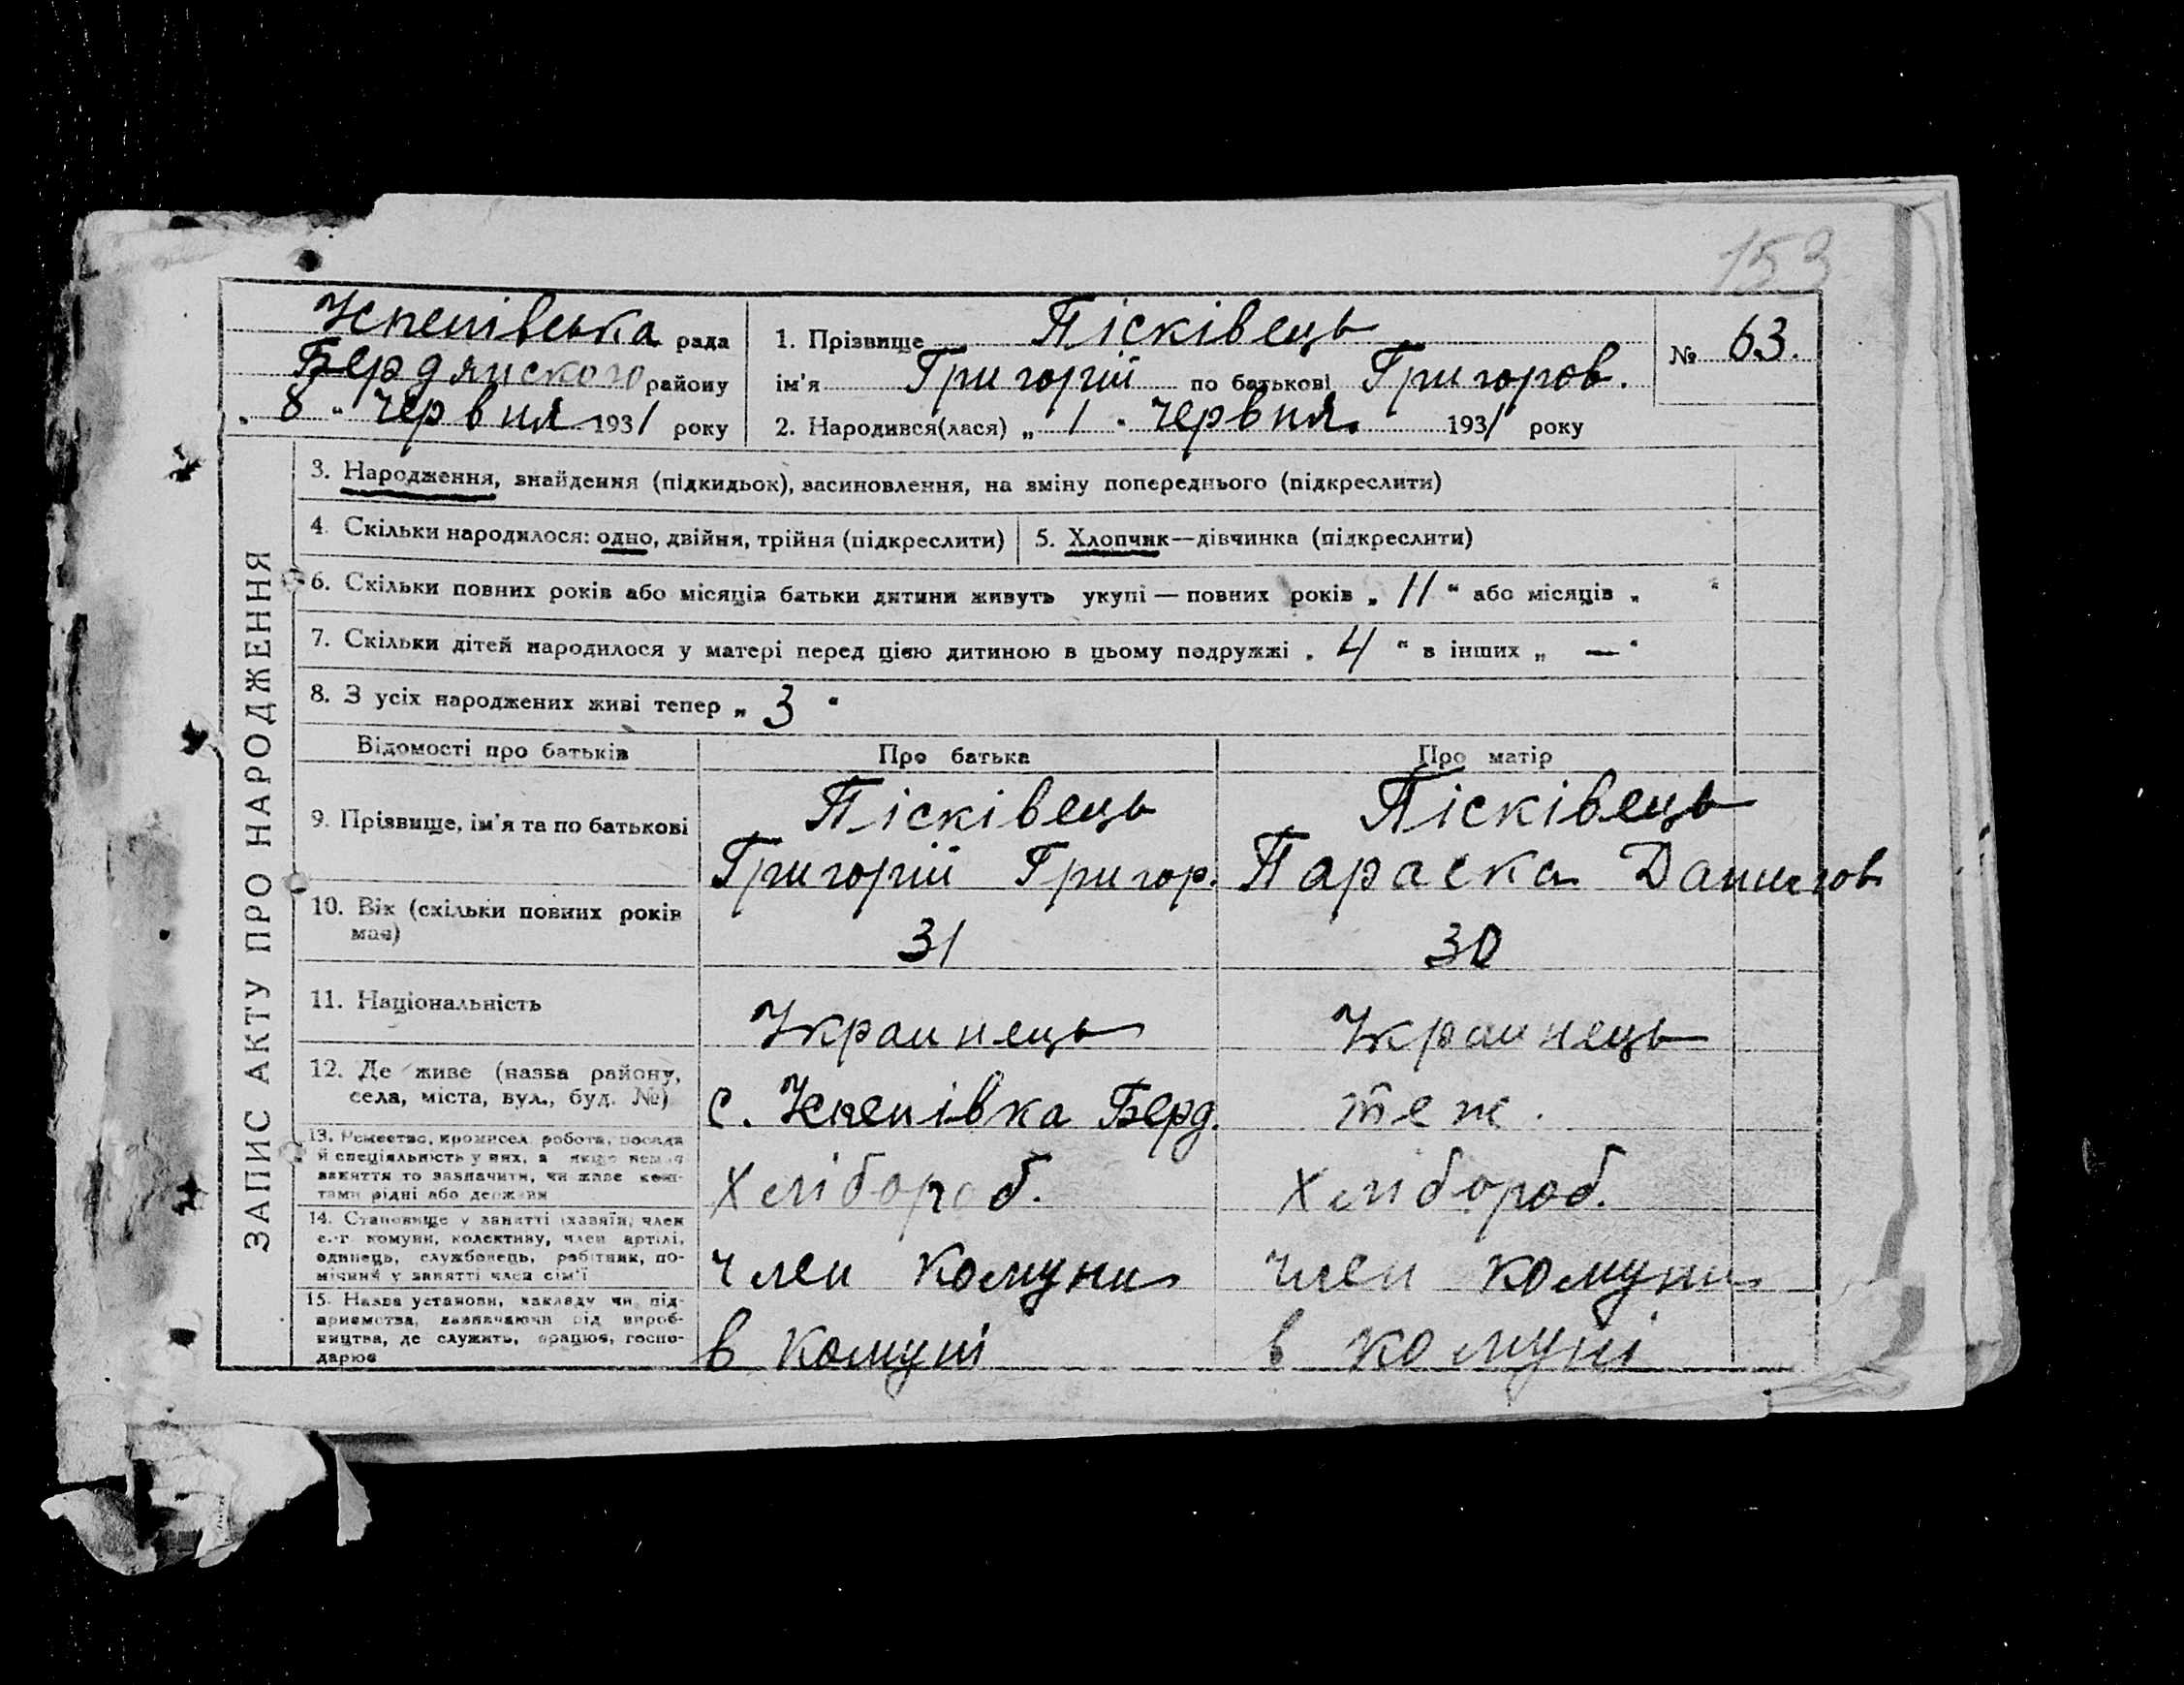 153
Успенівська рада
Бердянского району
„ 8 " червня 1931 року
1. Прізвище Пісківець
ім'я Григорій по батькові Григоров.
2. Народився(лася) „ 1 " червня 1931 року
№ 63.
ЗАПИС АКТУ ПРО НАРОДЖЕННЯ
3. Народження, знайдення (підкидьок), засиновлення, на зміну попереднього (підкреслити)
4. Скільки народилося: одно, двійня, трійня (підкреслити)
5. Хлопчик—дівчинка (підкреслити)
6. Скільки повних років або місяців батьки дитини живуть укупі — повних років „ 11 " або місяців „ "
7. Скільки дітей народилося у матері перед цією дитиною в цьому подружжі „ 4 " в інших „ — "
8. З усіх народжених живі тепер „ 3 "
Відомості про батьків Про батька Про матір
9. Прізвище, ім'я та по батькові
Пісківець
Григорій Григор.
Пісківець
Параска Данилов
10. Вік (скільки повних років
має)
31
30
11. Національність
Украинець
Украинець
12. Де живе (назва району,
села, міста, вул., буд. №)
с. Успенівка Берд.
теж.
13. Ремество, промисел, робота, посада
й спеціальність у них, а якщо немає
заняття то зазначити, чи живе кош-
тами рідні або держави
Хлібороб.
Хлібороб.
14. Становище у занятті (хазяїн, член
с.-г. комуни, колективу, член артілі,
одинець, службовець, робітник, по-
мічний у занятті член сім'ї
член комуни
член комуни
15. Назва установи, закладу чи під-
приємства, зазначаючи рід вироб-
ництва, де служить, працює, госпо-
дарює
в комуні
в комуні